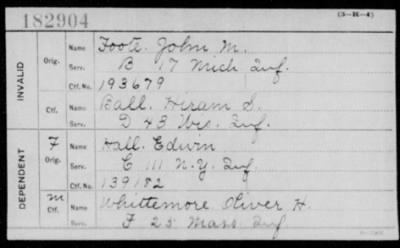 182904
(3-H-4)
INVALID
Orig.
Name Foote. John M.
Serv. B 17 Mich Inf.
Ctf. No. 193679
Ctf.
Name Ball. Hiram S.
Serv. D 43 Wis. Inf.
DEPENDENT
F
Orig.
Name Hall. Edwin
Serv. C 111 N.Y. Inf.
Ctf. No. 139182
m
Ctf.
Name Whittemore Oliver H.
Serv. F 25 Mass. Inf